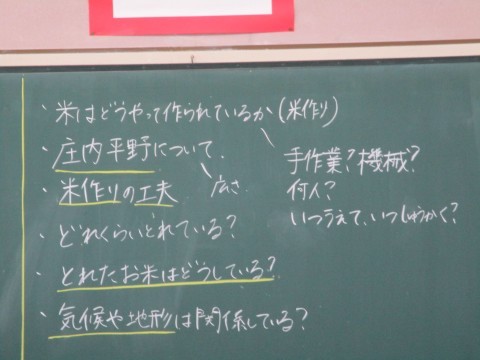 ・米はどうやって作られているか(米作り)
・庄内平野について、
広さ
・米作りの工夫
手作業?機械?
何人?
いつうえて、いつしゅうかく?
・どれくらいとれている?
・とれたお米はどうしている?
・気候や地形は関係している?